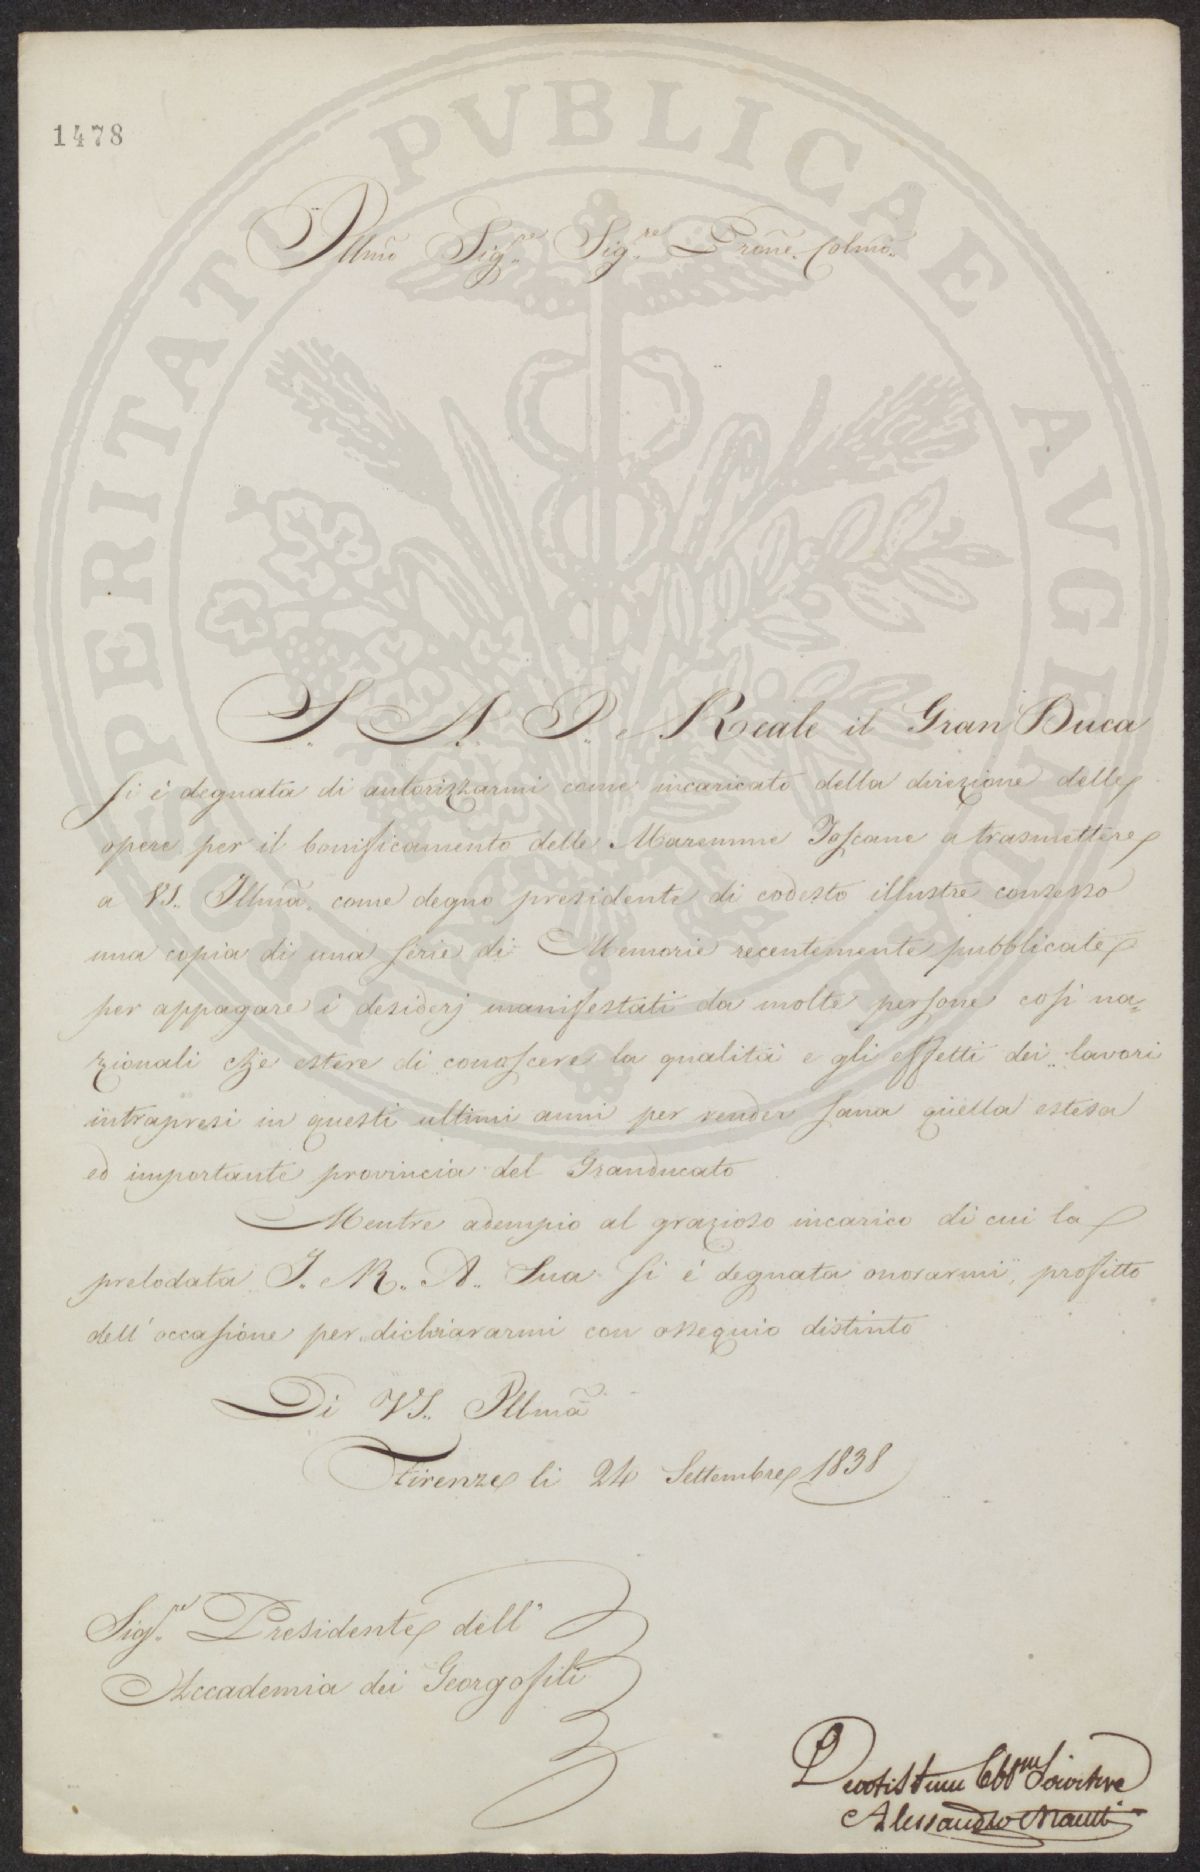 1478
PROSPERITATI PVBLICAE AVGENDAE
Illmo Sigre Sigre Prone Colmo
S. A. I. Reale il Gran Duca
si è degnata di autorizzarmi come incaricato della direzione delle
opere per il bonificamento delle Maremme Toscane a trasmettere
a VS. Illma come degno presidente di codesto illustre consesso
una copia di una serie di Memorie recentemente pubblicate
per appagare i desiderj manifestati da molte persone così na=
zionali che estere di conoscere la qualità e gli effetti dei lavori
intrapresi in questi ultimi anni per render sana quella estesa
ed importante provincia del Granducato
Mentre adempio al grazioso incarico di cui la
prelodata I. R. A. Sua si è degnata onorarmi, profitto
dell'occasione per dichiararmi con ossequio distinto
Di VS. Illma
Firenze li 24 Settembre 1838
Sigre Presidente dell'
Accademia dei Georgofili
Devotissimo Obbmo Servitore
Alessandro Manetti